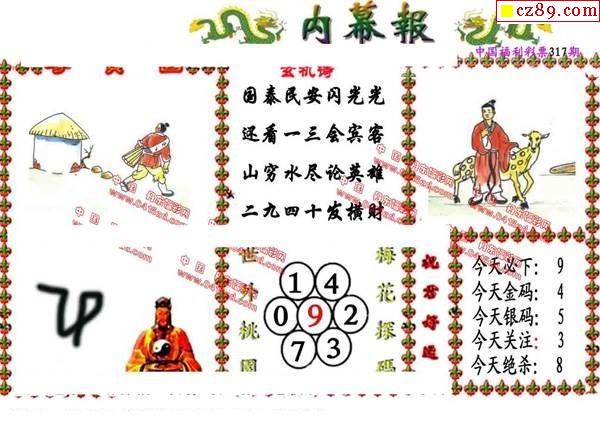 cz89.com
内幕報
中国福利彩票317期
玄机诗
国泰民安闪光光
还看一三会宾客
山穷水尽论英雄
二九四十发横财
中国 丹东福彩网
www.0415zx1.com
世外桃園
1 4
0 9 2
7 3
梅花探码
祝君好运
今天必下: 9
今天金码: 4
今天银码: 5
今天关注: 3
今天绝杀: 8